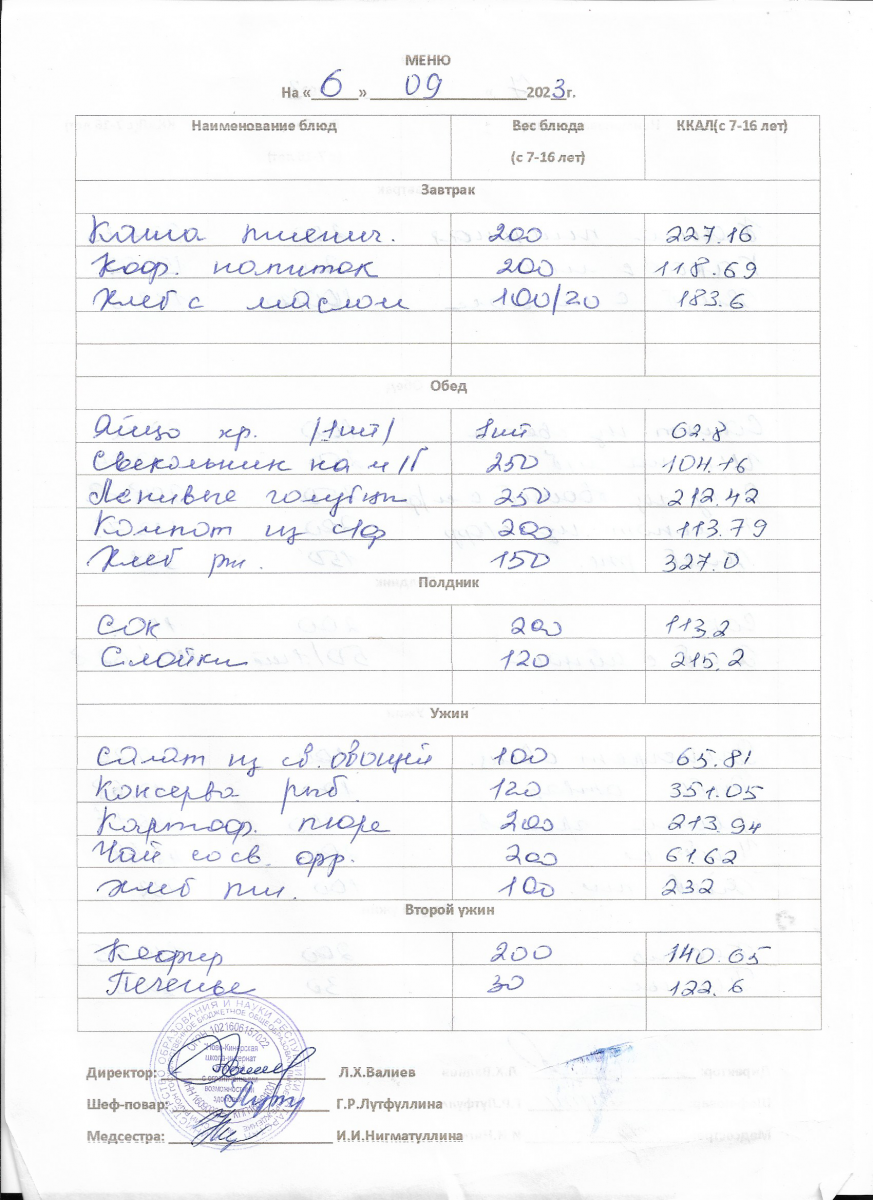 МЕНЮ
На « 6 » 09 2023 г.
Наименование блюд Вес блюда (с 7-16 лет) ККАЛ(с 7-16 лет)
Завтрак
Каша пшенич. 200 227.16
Коф. напиток 200 118.69
Хлеб с маслом 100/20 183.6
Обед
Яйцо кр. /1шт/ 1шт 62.8
Свекольник на м/б 250 104.16
Ленивые голубцы 250 212.42
Компот из с/ф 200 113.79
Хлеб рж. 150 327.0
Полдник
Сок 200 113.2
Слойки 120 215.2
Ужин
Салат из св. овощей 100 65.81
Консерва рыб. 120 351.05
Картоф. пюре 200 213.94
Чай со св. фр. 200 61.62
Хлеб пш. 100 232
Второй ужин
Кефир 200 140.65
Печенье 30 122.6
ОГРН 1021606157022
школа-интернат
Директор: Л.Х.Валиев
Шеф-повар: Г.Р.Лутфуллина
Медсестра: И.И.Нигматуллина